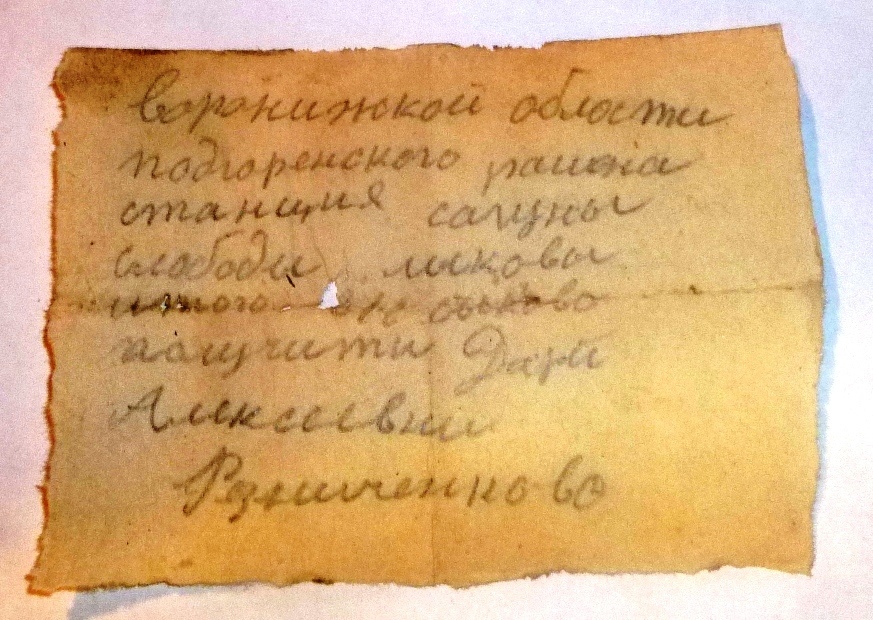 воронижской области
подгоренского района
станция сагуны
слободи лыковы
полущити Дари
Алексеевни
Резниченково